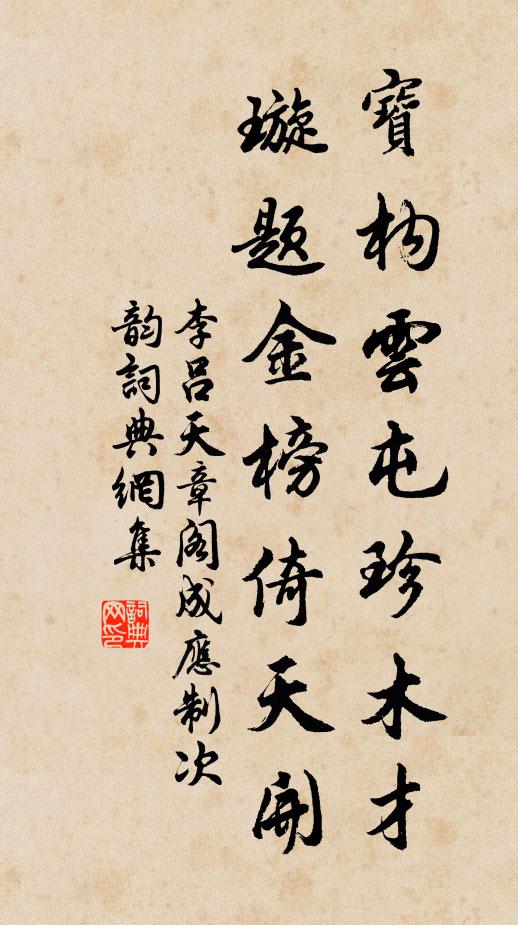 寶构雲屯珍木才
璇题金榜倚天開
李吕天章阁成應制次
韵詞典網集
詞典网印